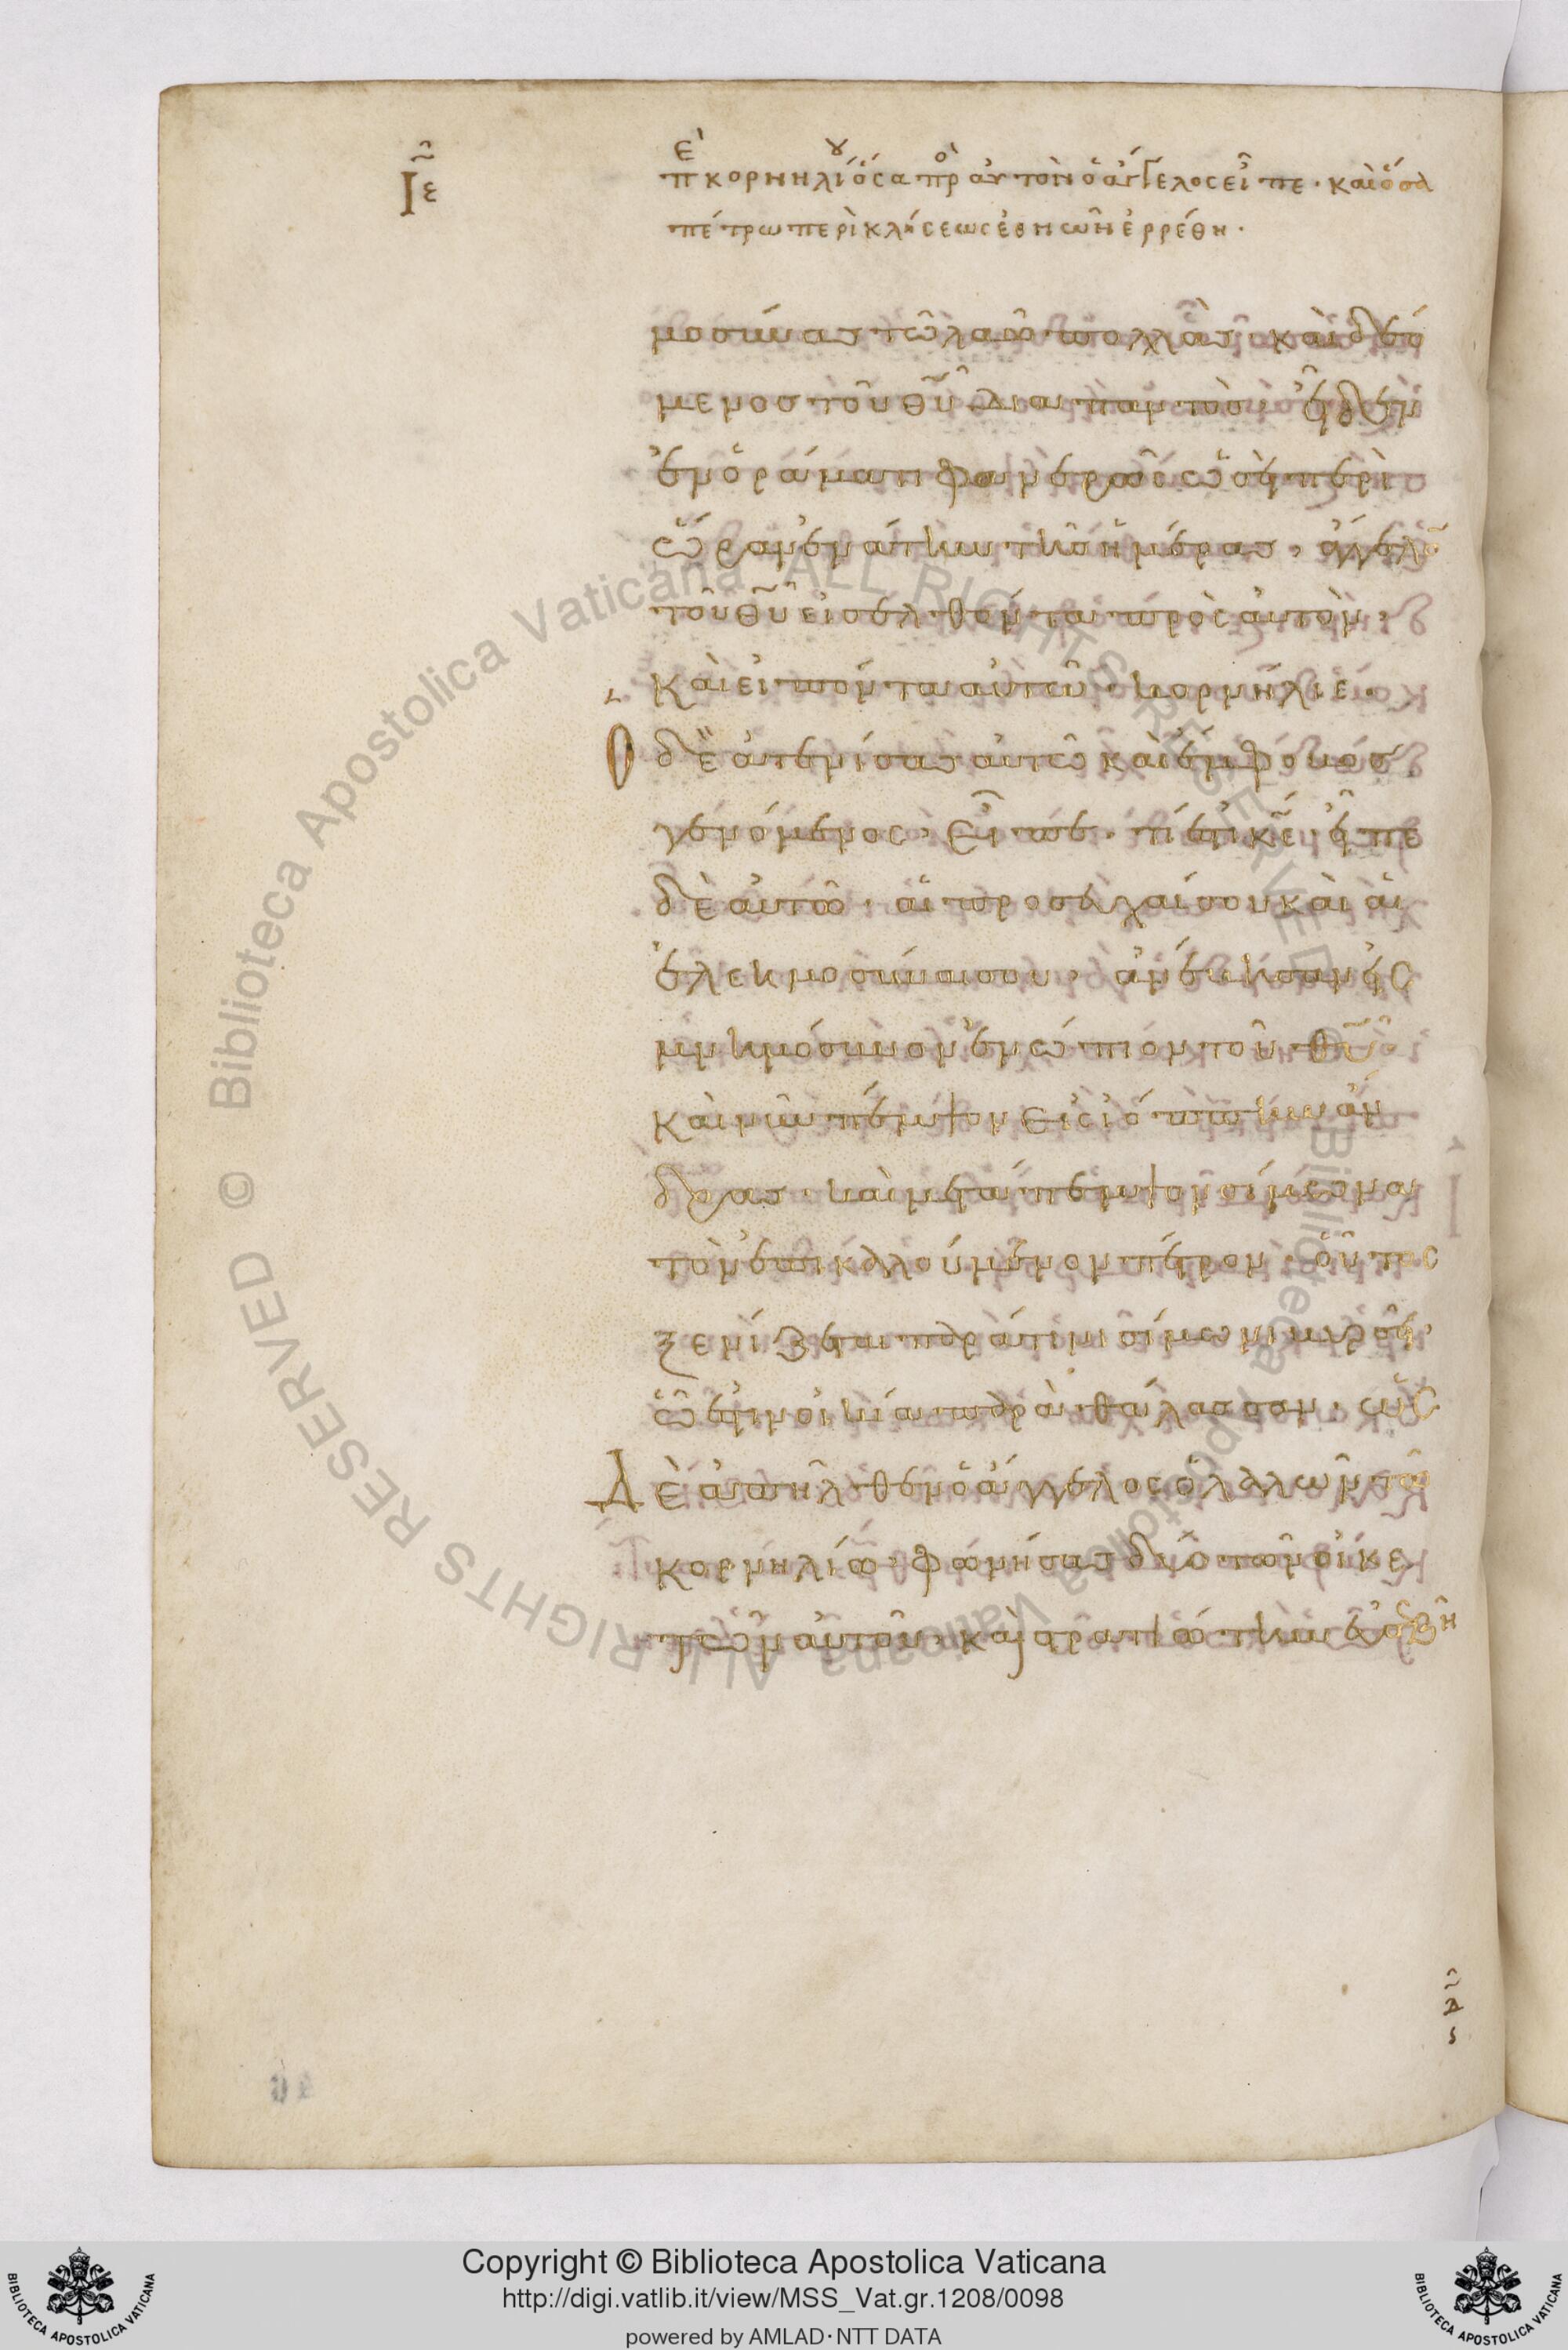 ιε
περὶ κορνηλίου ὅσα πρὸς αὐτὸν ὁ ἄγγελος εἶπε· καὶ ὅσα
πέτρω περὶ κλήσεως ἐθνῶν ἐρρέθη·
μοσύνας τῶ λαῶ πολλὰς· καὶ δεό
μενος τοῦ θῦ διαπαντὸς· εἶδεν
ἐν ὁράματι φανερῶς ὡσεὶ περὶ
ὥραν ἐνάτην τῆς ἡμέρας, ἄγγελο
τοῦ θῦ εἰσελθόντα πρὸς αὐτὸν·
καὶ εἰπόντα αὐτῶ· κορνήλιε·
Ο δὲ ἀτενίσας αὐτῶ καὶ ἔμφοβος
γενόμενος, εἶπε· τί ἐστι κε· εἶπε
δὲ αὐτῶ· αἱ προσευχαί σου καὶ αἱ
ἐλεημοσύναι σου, ἀνέβησαν εἰς
μνημόσυνον ἐνώπιον τοῦ θῦ
καὶ νῦν πέμψον εἰς ἰόππην ἄν
δρας· καὶ μετάπεμψον σίμωνα
τὸν ἐπικαλούμενον πέτρον· οὗτος
ξενίζεται παρά τινι σίμωνι βυρσεῖ,
ὧ ἐστιν οἰκία παρὰ θάλασσαν· ὡς
Δὲ ἀπῆλθεν ὁ ἄγγελος ὁ λαλῶν τῶ
κορνηλίω· φωνήσας δύο τῶν οἰκε
τῶν αὐτοῦ· καὶ στρατιώτην εὐσεβῆ
Copyright © Biblioteca Apostolica Vaticana
http://digi.vatlib.it/view/MSS_Vat.gr.1208/0098
powered by AMLAD·NTT DATA
BIBLIOTECA APOSTOLICA VATICANA
BIBLIOTECA APOSTOLICA VATICANA
© Biblioteca Apostolica Vaticana ALL RIGHTS RESERVED
© Biblioteca Apostolica Vaticana ALL RIGHTS RESERVED